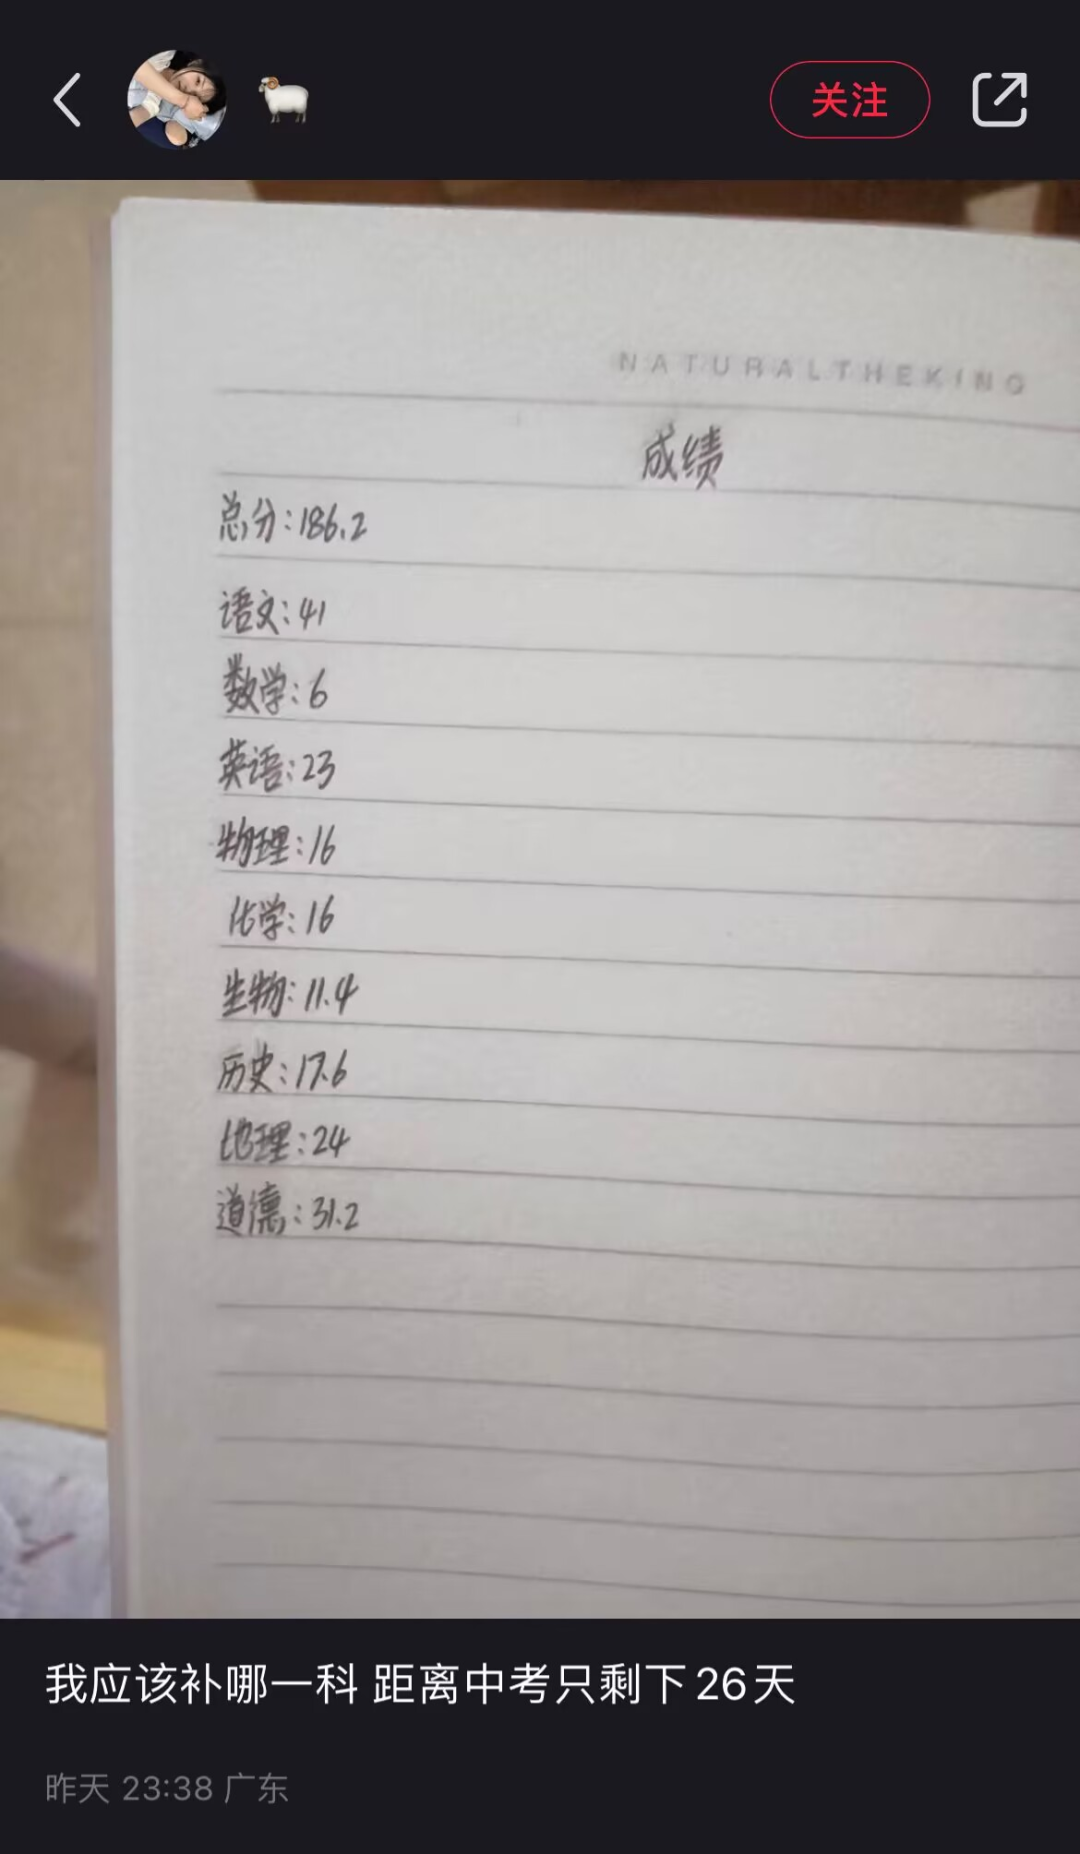 关注
NATURALTHEKING
成绩
总分:186.2
语文:41
数学:6
英语:23
物理:16
化学:16
生物:11.4
历史:17.6
地理:24
道德:31.2
我应该补哪一科 距离中考只剩下26天
昨天 23:38 广东